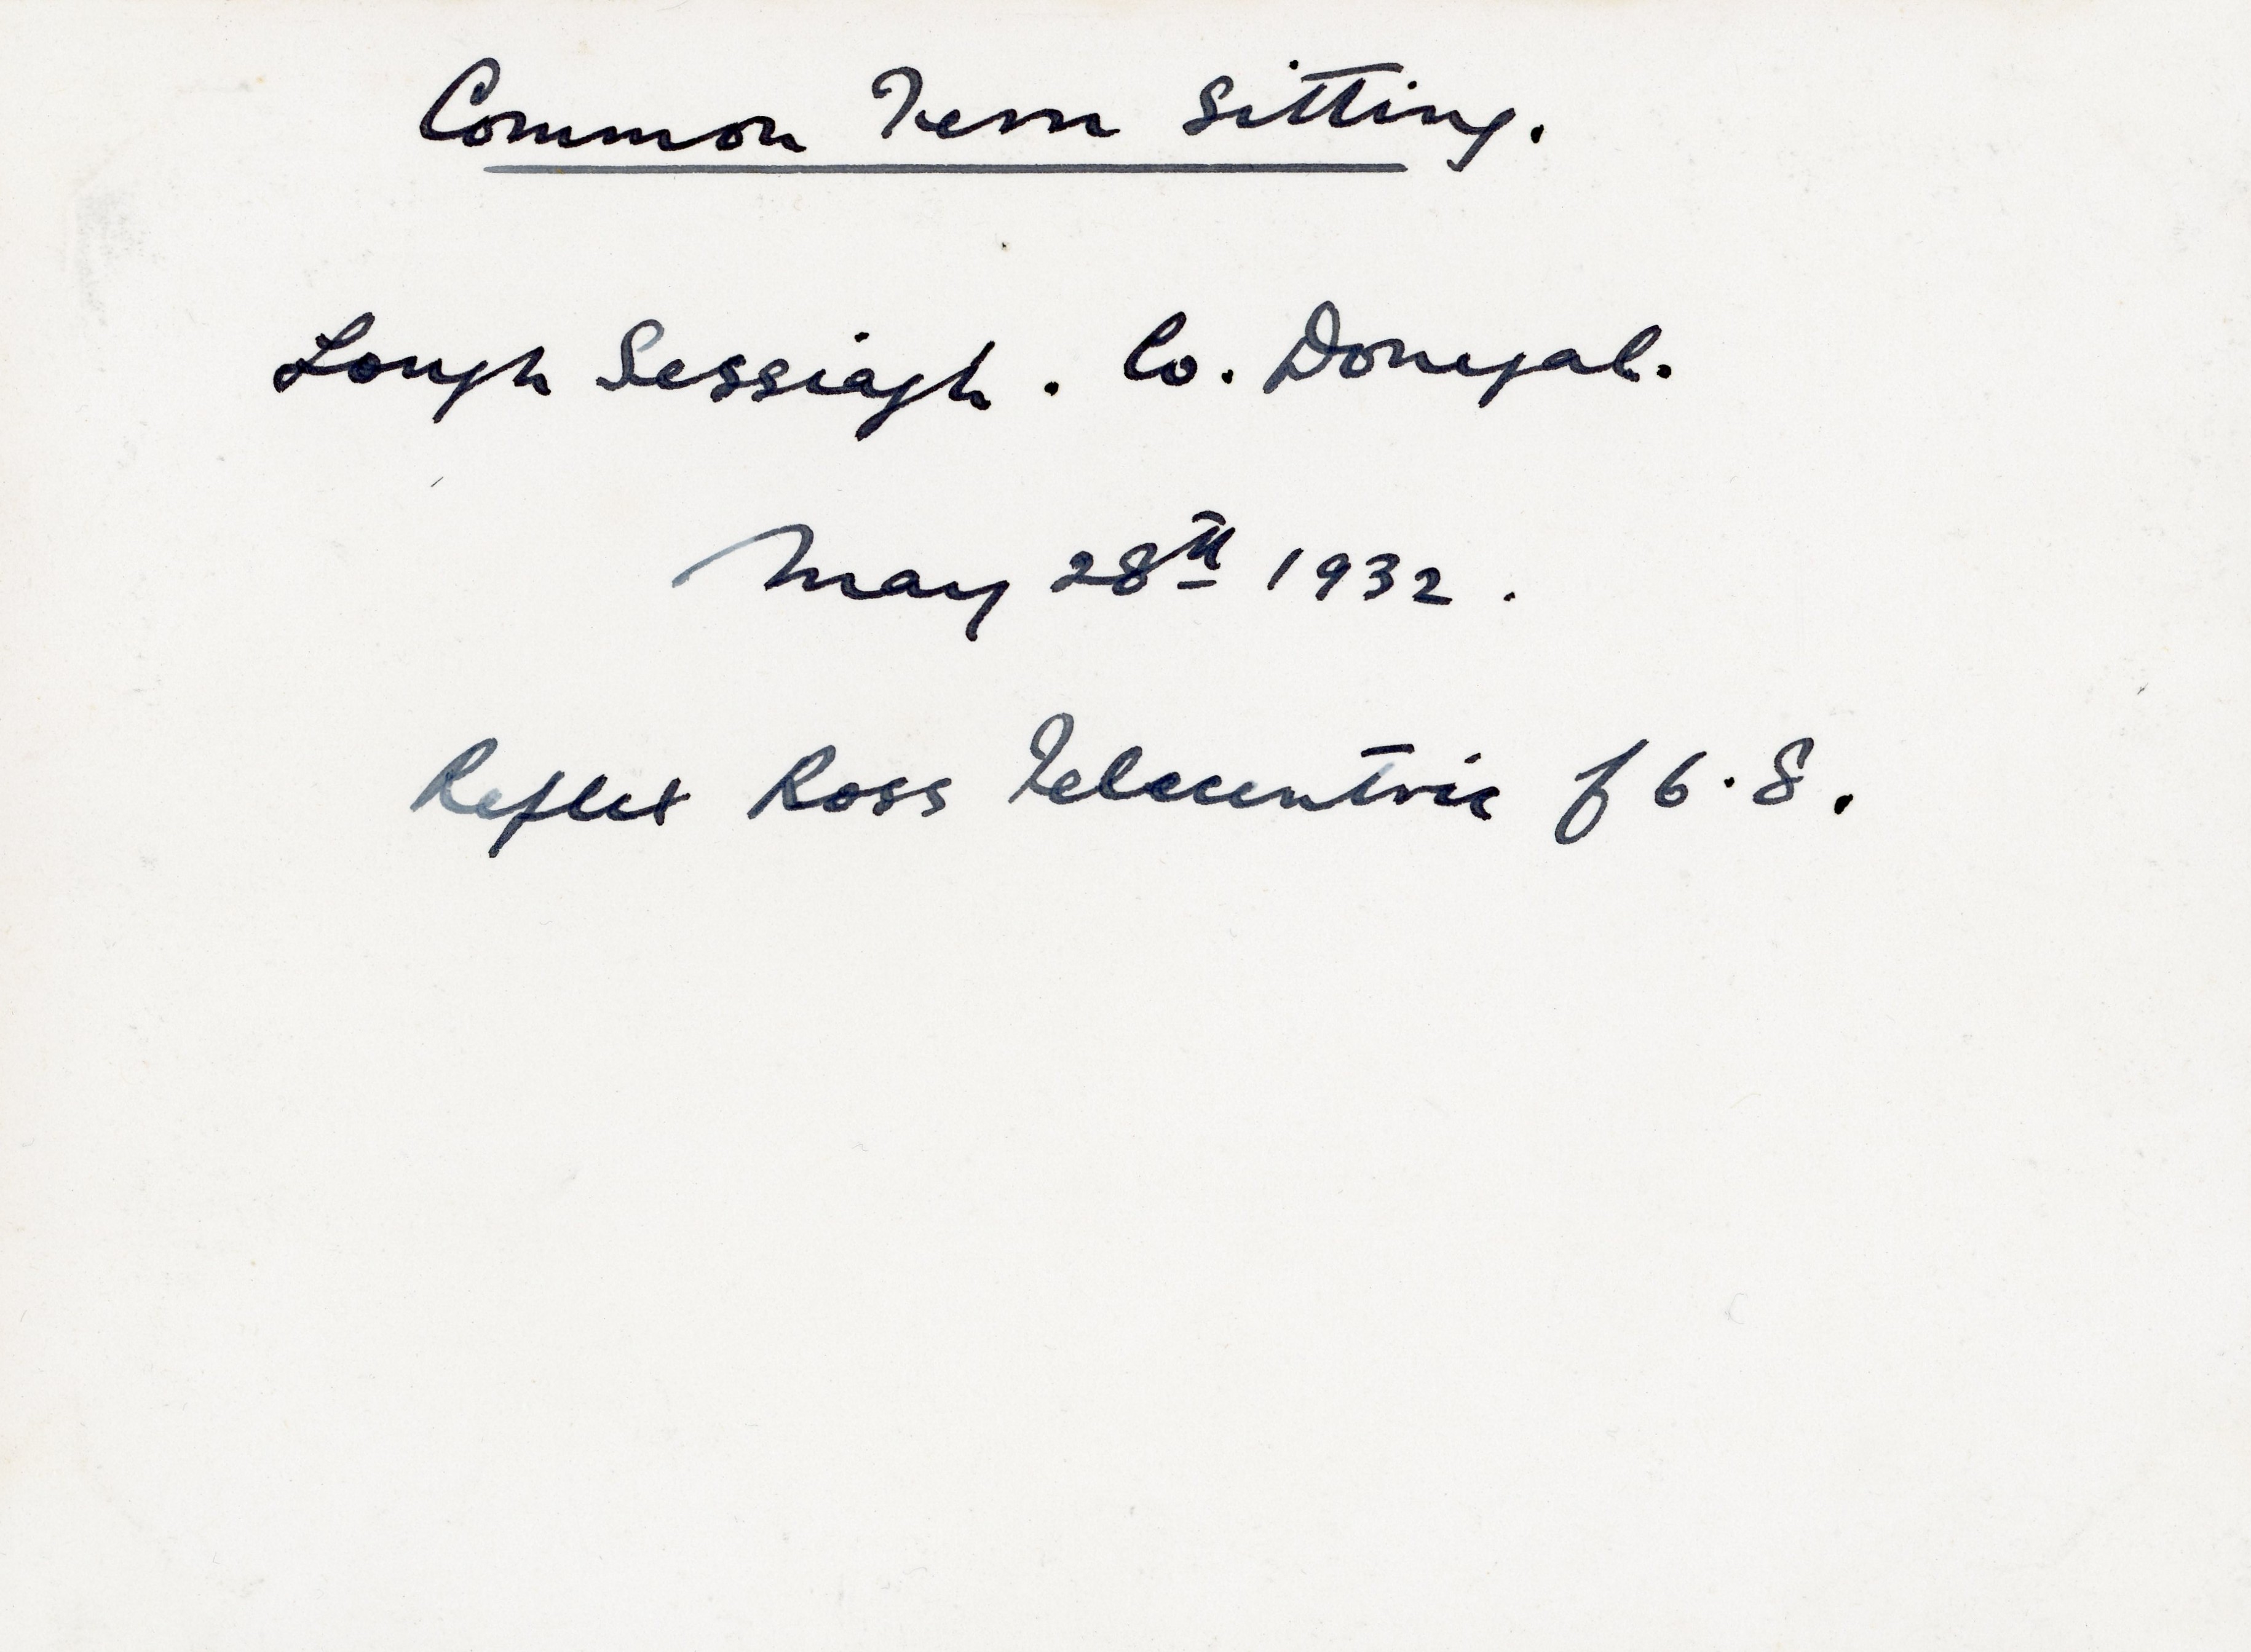 Common Tern Sitting.
Lough Sessiagh. Co. Donegal.
May 28th 1932.
Reflex Ross Telecentric f 6.8.